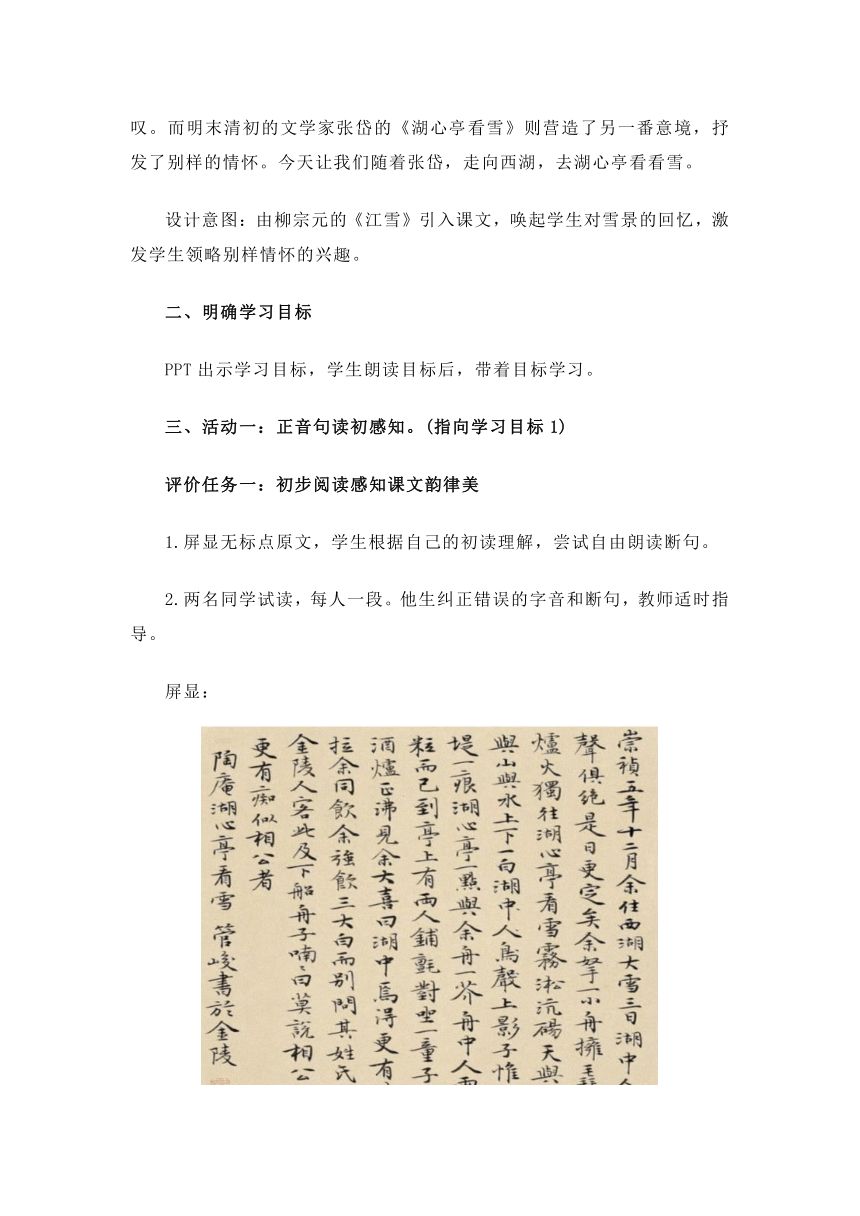 叹。而明末清初的文学家张岱的《湖心亭看雪》则营造了另一番意境，抒
发了别样的情怀。今天让我们随着张岱，走向西湖，去湖心亭看看雪。
设计意图：由柳宗元的《江雪》引入课文，唤起学生对雪景的回忆，激
发学生领略别样情怀的兴趣。
二、明确学习目标
PPT 出示学习目标，学生朗读目标后，带着目标学习。
三、活动一：正音句读初感知。(指向学习目标 1)
评价任务一：初步阅读感知课文韵律美
1.屏显无标点原文，学生根据自己的初读理解，尝试自由朗读断句。
2.两名同学试读，每人一段。他生纠正错误的字音和断句，教师适时指
导。
屏显：
崇禎五年十二月余住西湖大雪三日湖中
聲俱絶是日更定矣余拏一小舟擁
爐火獨往湖心亭看雪霧凇沆碭天與
與山與水上下一白湖中人鳥聲上影子惟
堤一痕湖心亭一點與余舟一芥舟中人
粒而已到亭上有兩人鋪氈對坐一童子
酒爐正沸見余大喜曰湖中焉得更有
拉余同飲余強飲三大白而別問其姓氏
金陵人客此及下船舟子喃〻曰莫說相公
更有痴似相公者
陶庵湖心亭看雪 管峻書於金陵